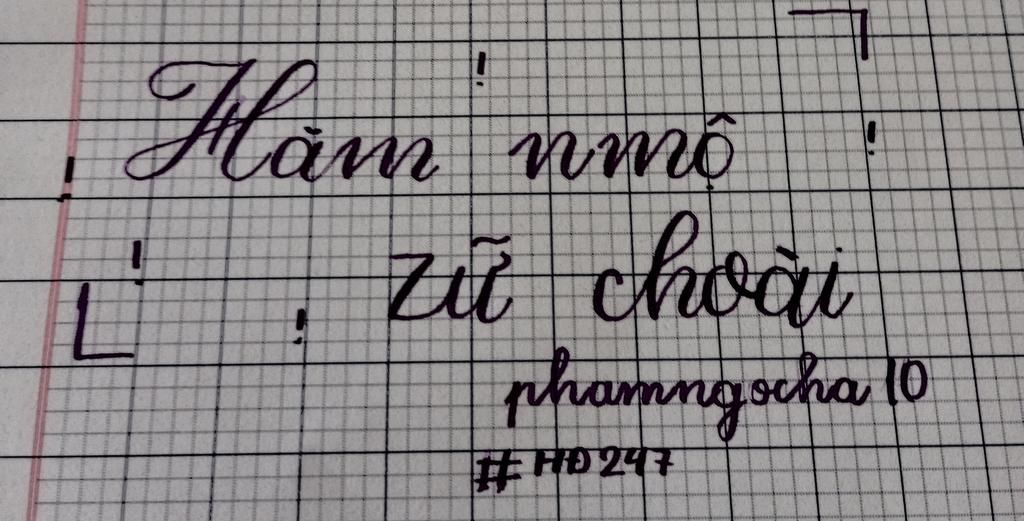 Hàm nmộ
zữ choài
phamngocha10
#HĐ247